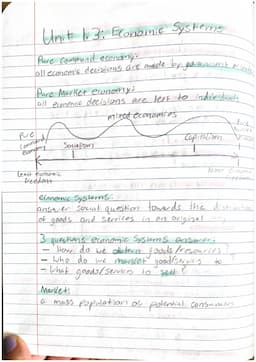 Unit 1.3: Economic Systems
Pure Command economy:
all economic decisions are made by government
Pure Market economy:
all economic decisions are left to individuals
mixed economies
Pure command economy
Socialism
Capitalism
Pure
Least economic freedom
economic
economic Systems:
answer social question towards the
of goods and services in an original
3 questions economic systems answer:
- How do we obtain goods/resources?
- Who do we market goods/services to
- What goods/services to sell?
Market:
a mass population of potential consumers